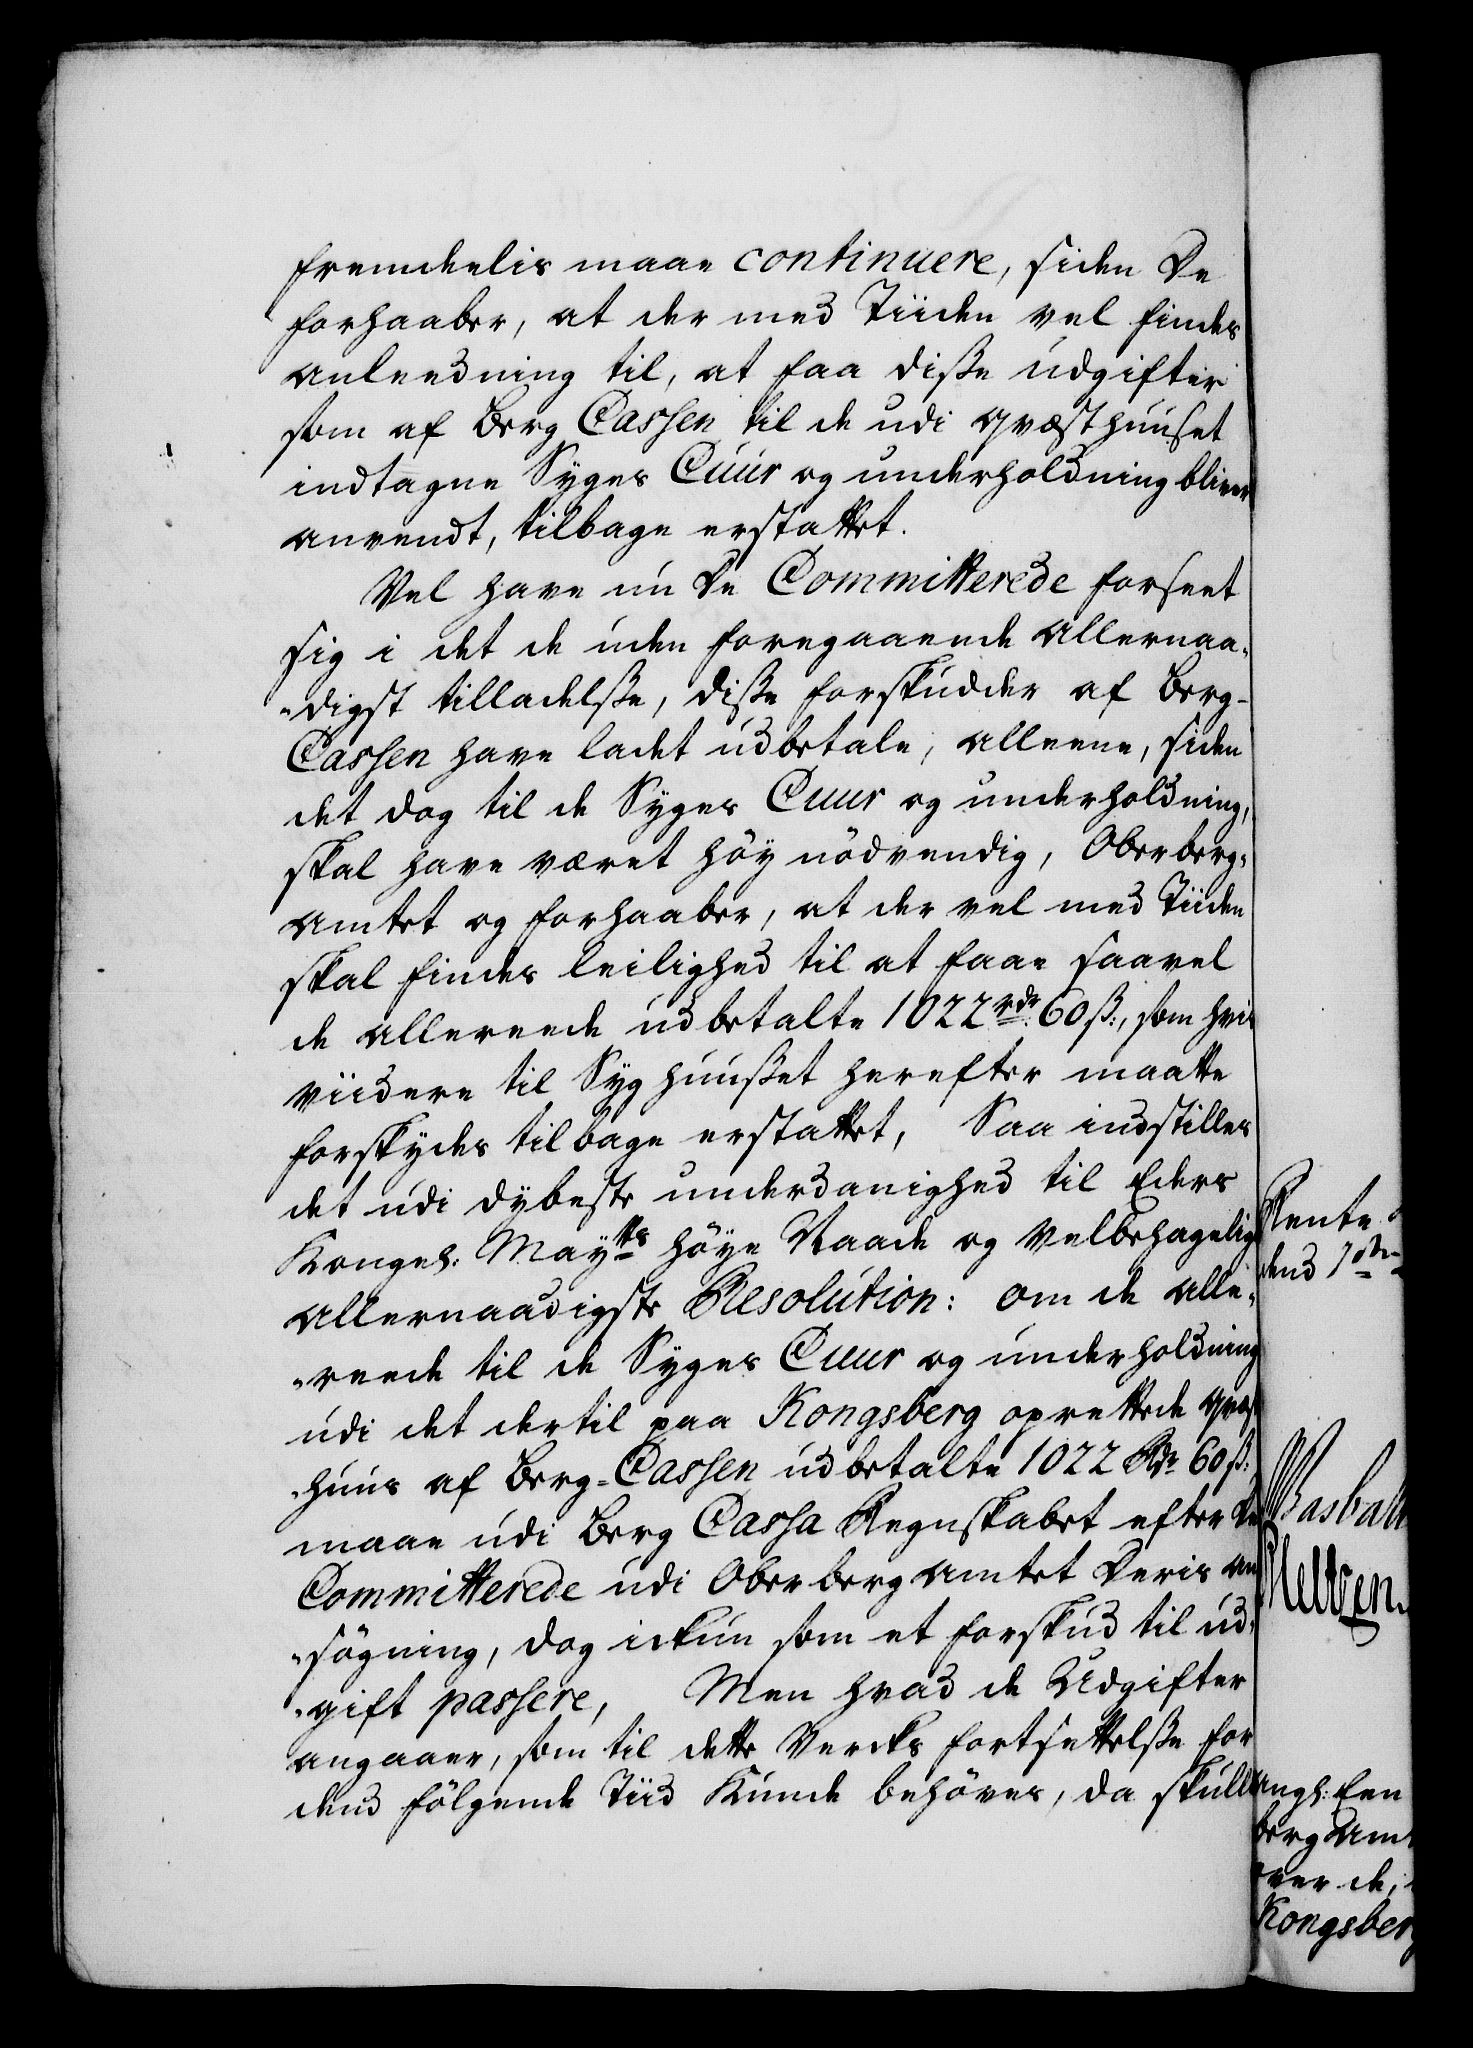 fremdeelis maae continuere, siden De
forhaaber, at der med Tiiden vel findes
anleedning til, at faa disse udgifter
som af Berg Cassen til de udi qvæsthuuset
indtagne Syges Cuur og underholdning bliver
anvendt, tilbage erstattet.
Vel have nu De Committerede forseet
sig i det de uden foregaaende allernaa-
digst tilladelsse, disse forskudder af Berg-
Cassen have ladet udbetale, alleene, siden
det dog til de Syges Cuur og underholdning,
skal have været höy nödvendig, Oberberg-
amtet og forhaaber, at der vel med Tiiden
skal findes leilighed til at faae saavel
de allereede udbetalte 1022 rdr 60 ß:, som hvis
viidere til Syghuusset herefter maatte
forskydes tilbage erstattet, Saa indstilles
det udi dybeste underdanighed til Eders
Kongel: Maytts höye Naade og Velbehagelig
allernaadigste Resolution: om de alle-
reede til de Syges Cuur og underholdning
udi det dertil paa Kongsberg oprettede qvæst
huus af Berg-Cassen udbetalte 1022 Rdr 60 ß:
maae udi Berg Cassa Regnskabet efter De
Committerede udi Oberbergamtet Deris an
søgning, dog ickun som et forskud til ud-
gift passere, Men hvad de Udgifter
angaaer, som til dette Vercks fortsettelsse for
dend fölgende Tiid Kunde behöves, da skulle
Rente
dend 1
angl: Een
berg Am
over de,
Kongsberg